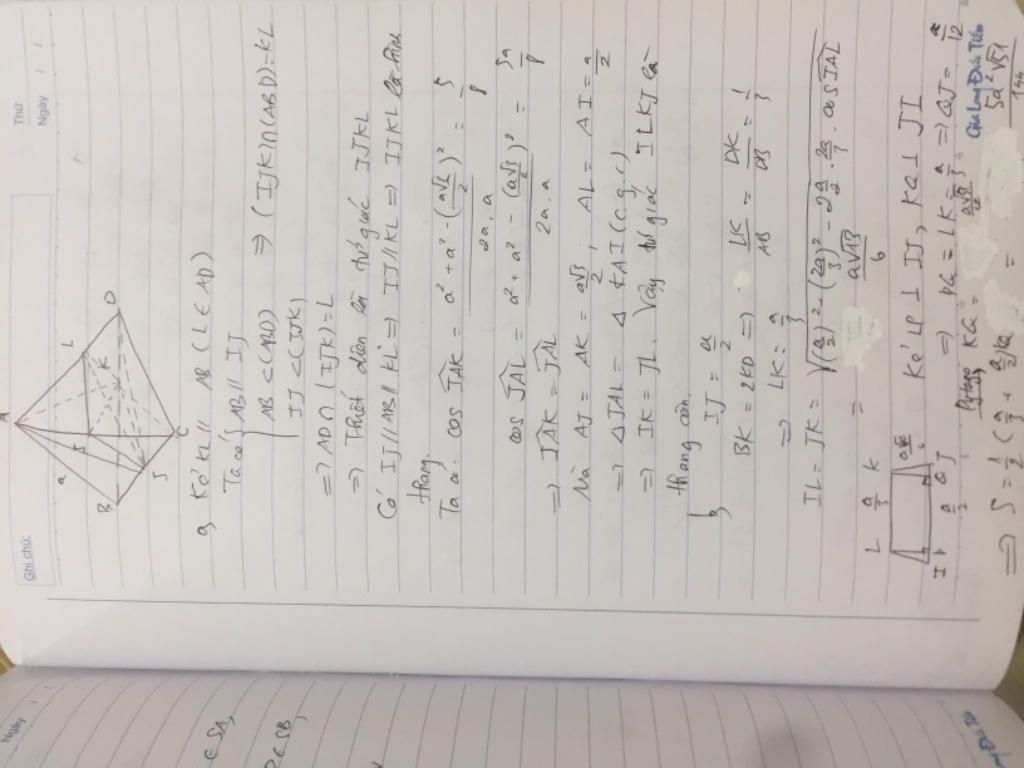 Thứ
Ngày
Ghi chú:
A
a
L
I
K
D
B
J
C
a, Kẻ KL // AB (L ∈ AD)
Ta có { AB // IJ
AB ⊂ (ABD) ⇒ (IJK) ∩ (ABD) = KL
IJ ⊂ (IJK)
⇒ AD ∩ (IJK) = L
⇒ Thiết diện là tứ giác IJKL
Có IJ // AB // KL ⇒ IJ // KL ⇒ IJKL là hình
thang.
Ta có: cos IAK = a² + a² - (a√3/2)² / 2a.a = 5/8
cos JAL = a² + a² - (a√3/2)² / 2a.a = 5a/8
⇒ IAK = JAL
Mà AJ = AK = a√3/2; AL = AI = a/2
⇒ ΔJAL = ΔKAI (c.g.c)
⇒ IK = JL. Vậy tứ giác ILKJ là
thang cân.
b, IJ = a/2
BK = 2KD ⇒ LK/AB = DK/DB = 1/3
⇒ LK = a/3
IL = JK = √((a/2)² + (2a/3)² - 2 a/2 . 2a/3 . cos IAL)
= a√13/6
L a/3 K
I P a/2 Q J
Kẻ LP ⊥ IJ, KQ ⊥ JI
⇒ PQ = LK = a/3 ⇒ QJ = a/12
Pytago KQ =
⇒ S = 1/2 (a/3 + a/2) KQ = 5a²√51/144
Ngày
∈ SA,
∈ SB,